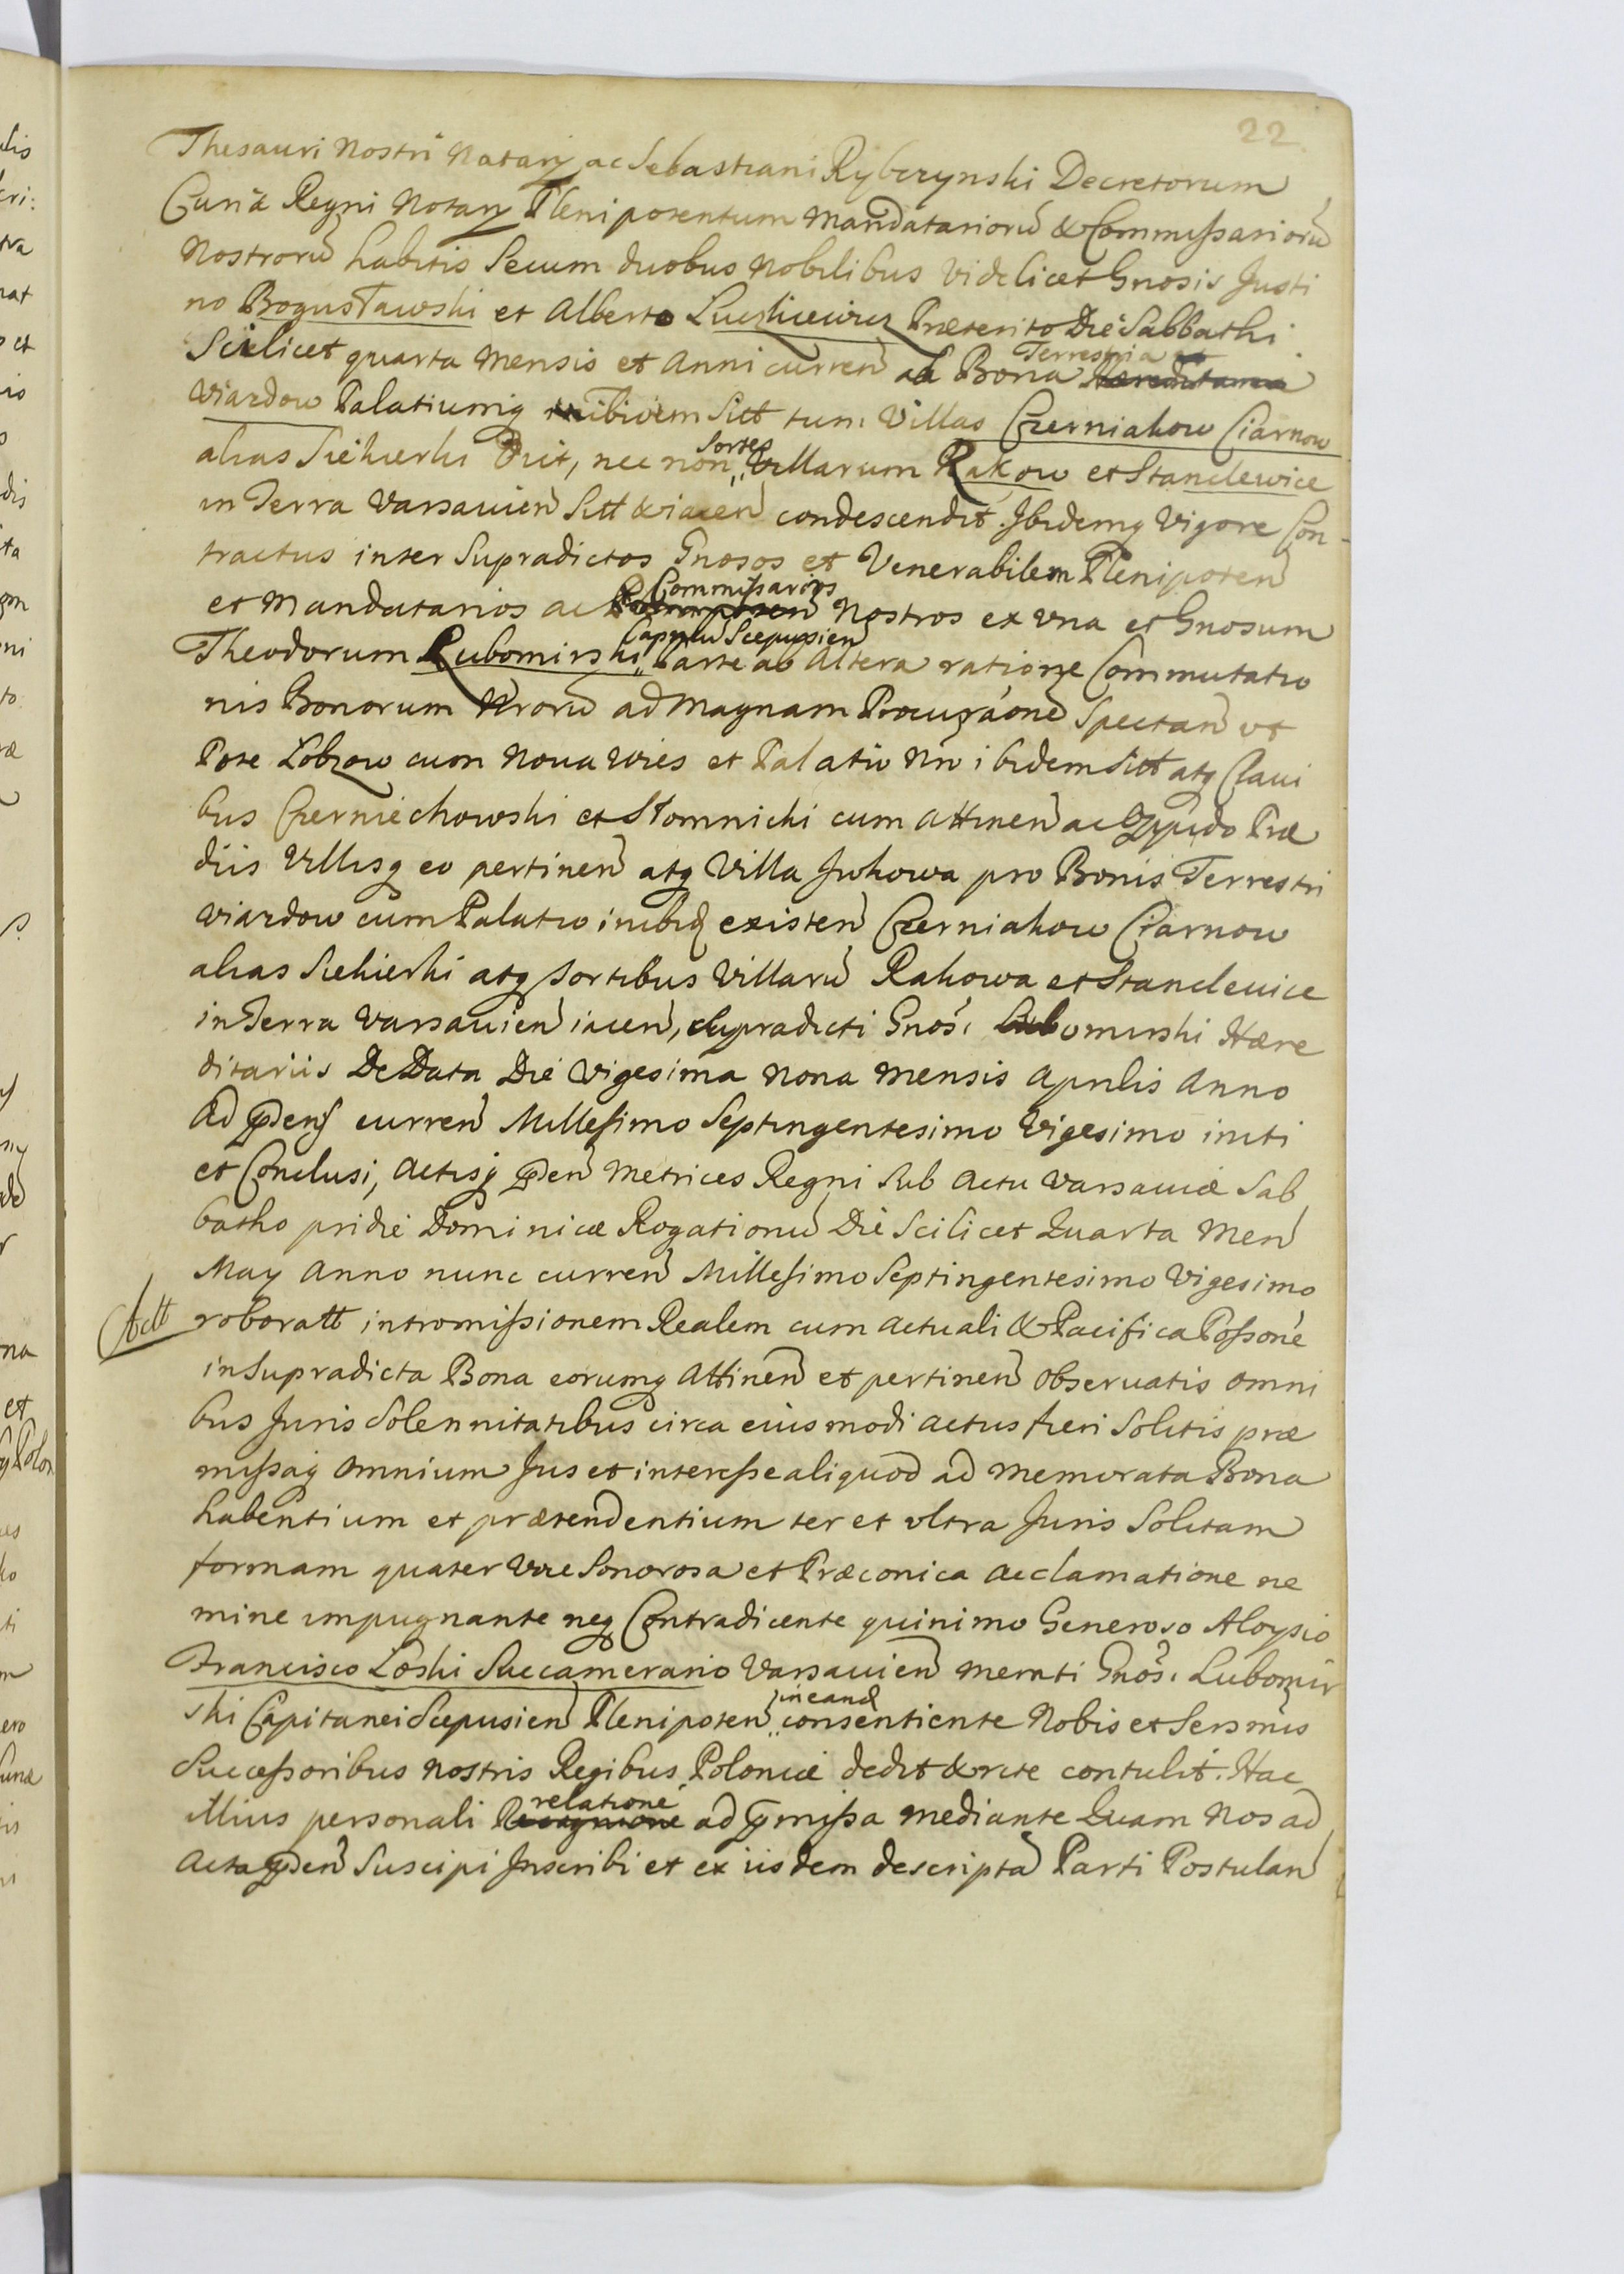 22
Thesauri Nostri Notarÿ ac Sebastiani Rybczynski Decretorum
Curiæ Regni Notarÿ Plenipotentum Mandatarioru͂ & Commissarioru͂
Nostroru͂ habitis Secum duobus Nobilibus videlicet Gnosis Justi
no Bogusławski et Alberto Præterito Die Sabbathi
Scilicet quarta Mensis et Anni curren͂ ad Bona Terrestria
Viazdow Palatiumq inibidem Sitt tum Villas Czerniakow Ciarnow
alias Siekierki Dict, nec non Sortes Villarum Rakow et Stanclewice
in Terra Varsavien͂ Sitt & iacen͂ condescendit. Ibidemq Vigore Con-
tractus inter Supradictos Gnosos et Venerabilem Plenipoten͂
et Mandatarios ac Commissarios Nostros ex una et Gnosum
Theodorum Lubomirski Capneu͂ Scepusien͂ Parte ab altera ratione Commutatio
nis Bonorum Nroru͂ ad Magnam Procura͂one͂ Spectan͂ ut
Pote Lobzow cum Nova Wies et Palatio Nro ibidem Sitt atq Clavi
bus Czerniechowski et Słomnicki cum attinen͂ ac Oppido Præ
diis Villisq eo pertinen͂ atq Villa Juhowa pro Bonis Terrestri
Viazdow cum Palatio inibiq existen͂ Czerniakow Ciarnow
alias Siekierki atq Sortibus Villaru͂ Rakowa et Stanclevice
in Terra Varsavien͂ iacen͂, Supradicti Gnosi Lubomirski Hære
ditariis De Data Die Vigesima Nona Mensis Aprilis Anno
Ad pden͂s curren͂ Millesimo Septingentesimo Vigesimo initi
et Conclusi, Actisq pden͂ Metrices Regni Sub Actu Varsaviæ Sab
batho pridie Dominicæ Rogationu͂ Die Scilicet Quarta Men͂
Maÿ Anno nunc curren͂ Millesimo Septingentesimo Vigesimo
roboratt intromissionem Realem cum actuali & Pacifica Possone
in Supradicta Bona eorumq Attinen͂ et pertinen͂ Observatis omni
bus Juris Solennitatibus circa eiusmodi actus fieri Solitis præ
missaq Omnium Jus et interesse aliquod ad memorata Bona
habentium et prætendentium ter et ultra Juris Solitam
formam quater Voce Sonorosa et Præconica acclamatione ne
mine impugnante neq Contradicente quinimo Generoso Aloysio
Francisco Łoski Succamerario Varsavien͂ merati Gnosi Lubomir
ski Capitanei Scepusien͂ Plenipoten͂ in eand consentiente Nobis et Sersmis
Successoribus Nostris Regibus Poloniæ dedit & rite contulit. Hac
illius personali relatione ad pmissa mediante Quam Nos ad
Acta pden͂ Suscipi Inscribi et ex iisdem descripta͂ Parti Postulan͂